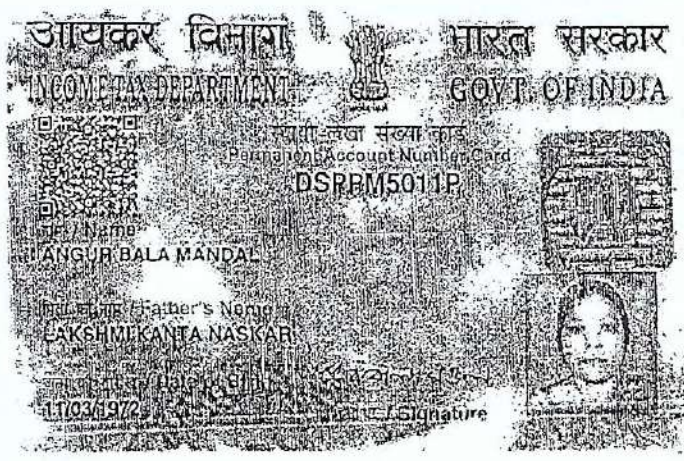 आयकर विभाग
भारत सरकार
INCOME TAX DEPARTMENT
GOVT. OF INDIA
स्थायी लेखा संख्या कार्ड
Permanent Account Number Card
DSRPM5011P
/ Name
ANGUR BALA MANDAL
/ Father's Name
LAKSHMIKANTA NASKAR
Date of Birth
11/03/1972
/ Signature